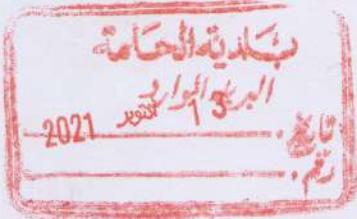 بلدية الحامة
البريد الوارد
تاريخ: 13 أكتوبر 2021
رقم: